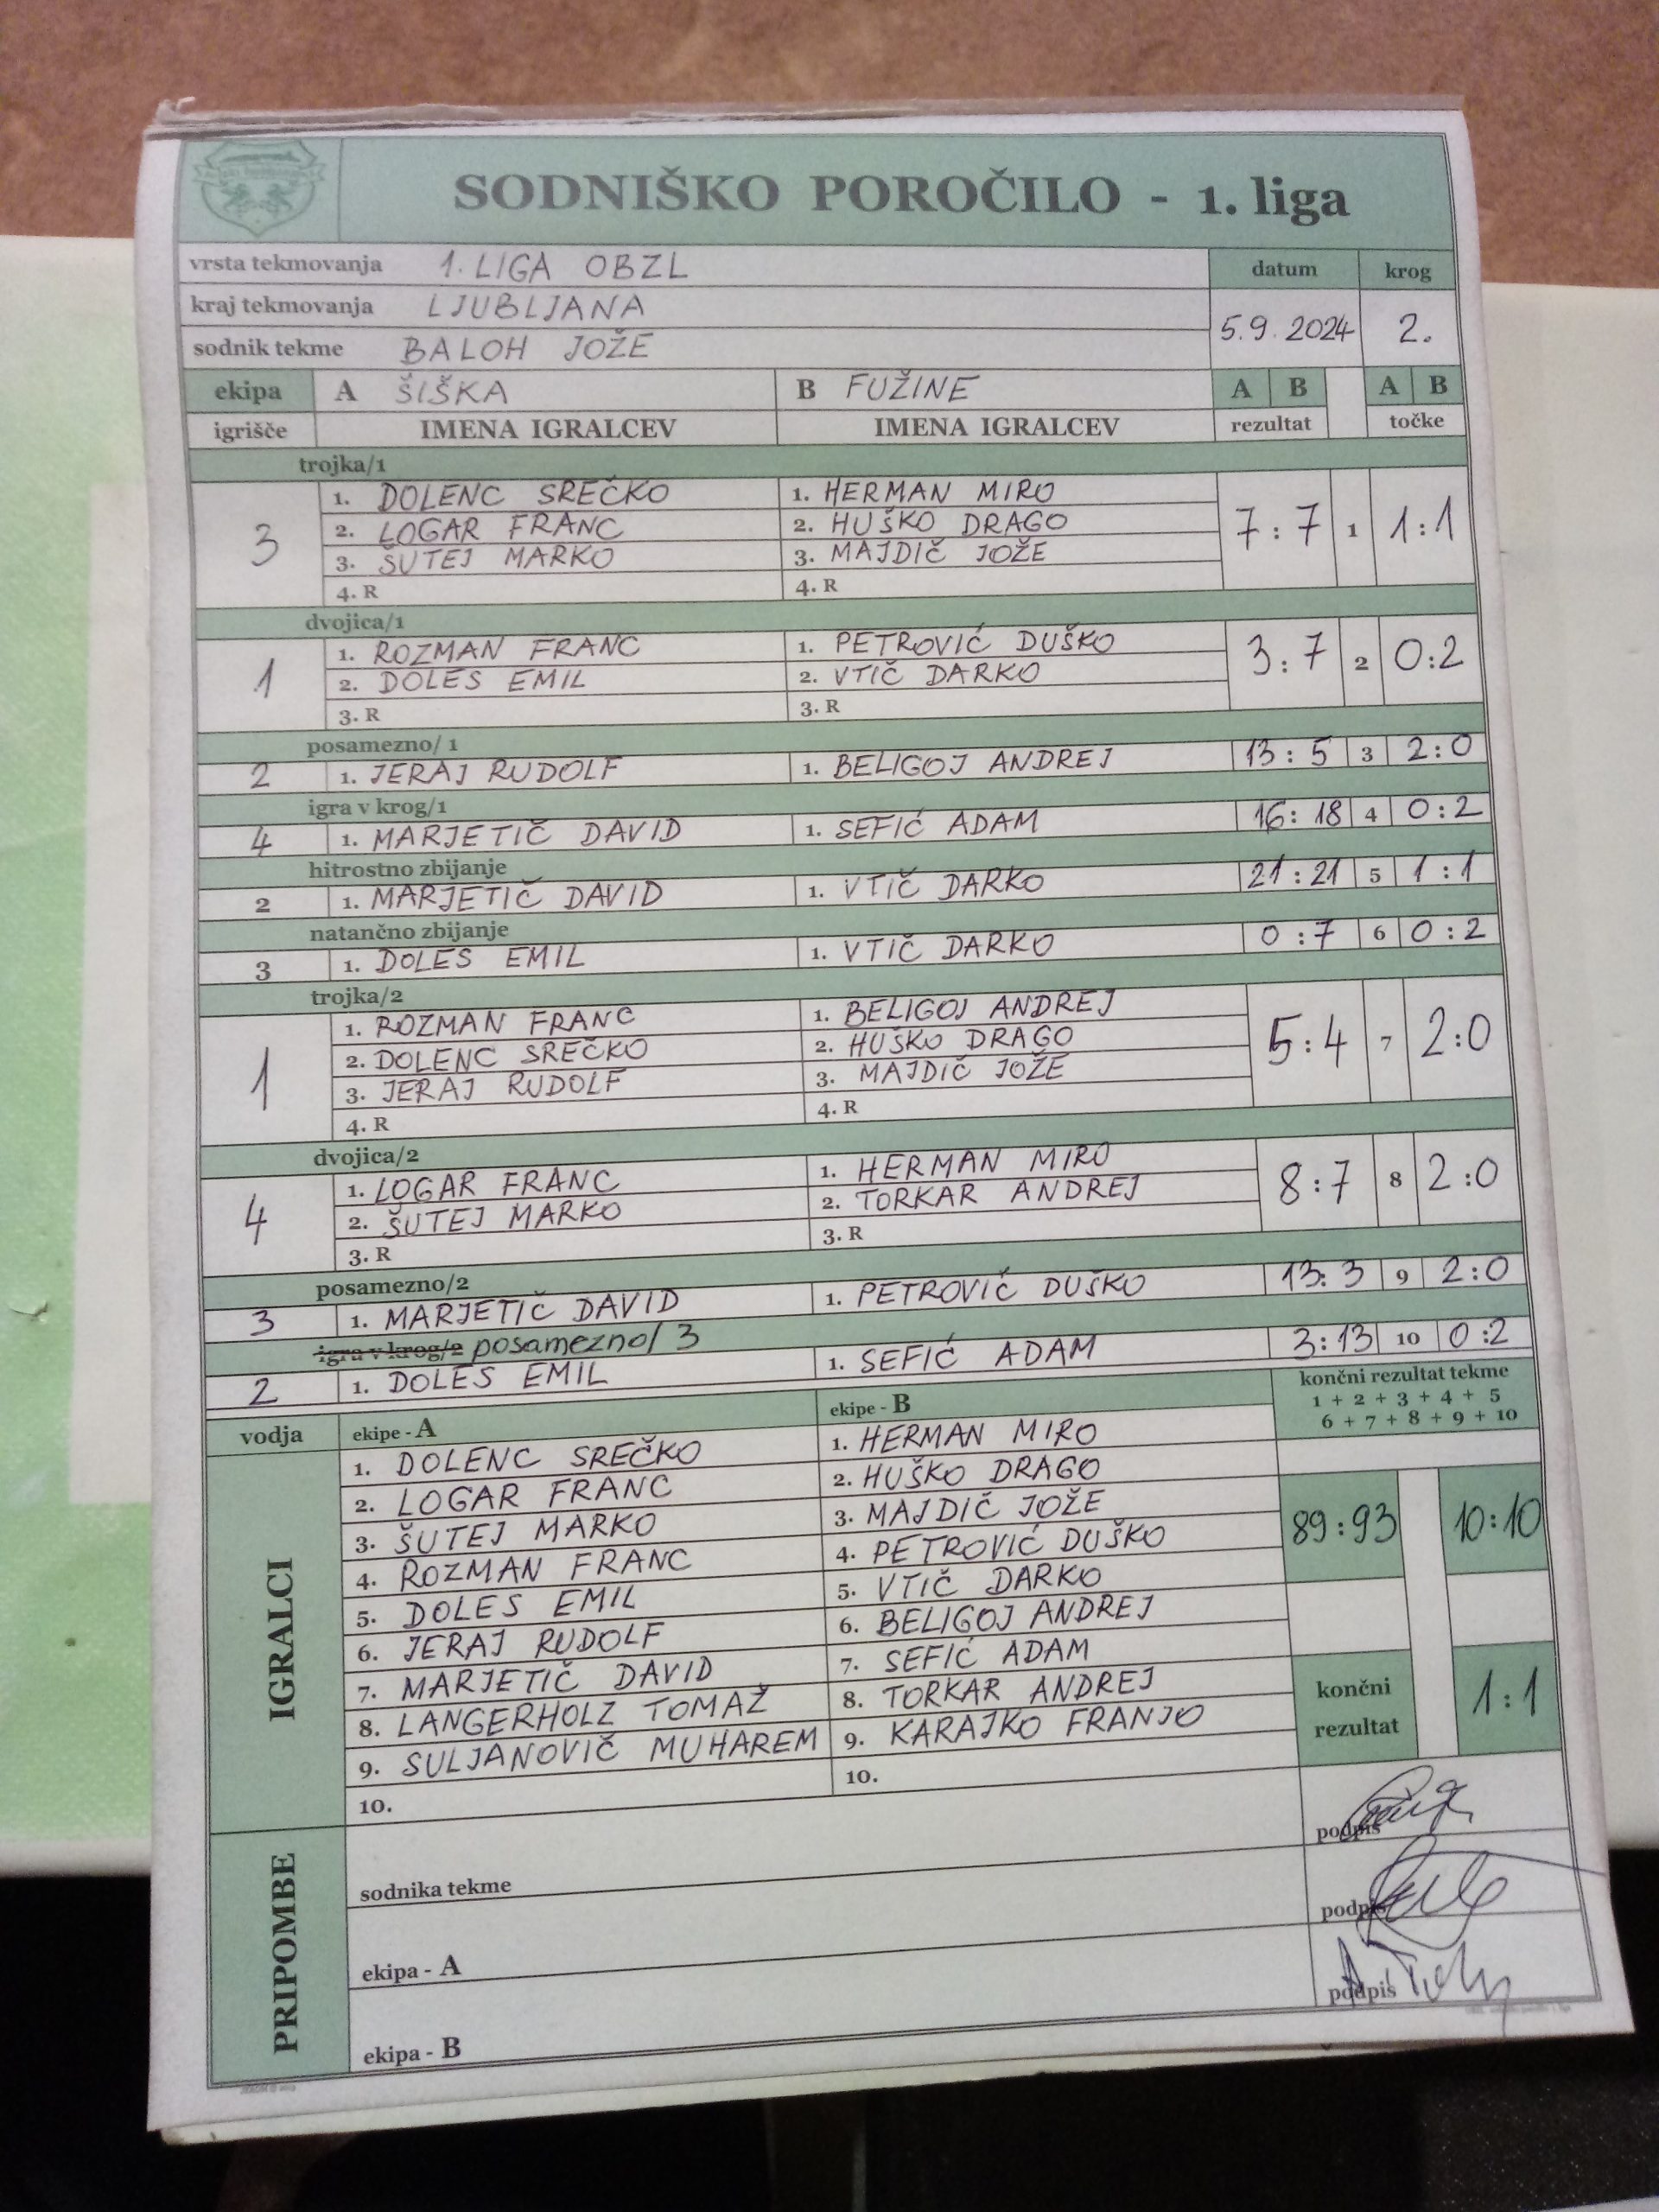 SODNIŠKO POROČILO - 1. liga
vrsta tekmovanja 1. LIGA OBZL datum krog
kraj tekmovanja LJUBLJANA
sodnik tekme BALOH JOŽE 5.9.2024 2.
ekipa A ŠIŠKA B FUŽINE A B A B
igrišče IMENA IGRALCEV IMENA IGRALCEV rezultat točke
trojka/1
3 1. DOLENC SREČKO 1. HERMAN MIRO 7:7 1 1:1
2. LOGAR FRANC 2. HUŠKO DRAGO
3. ŠUTEJ MARKO 3. MAJDIČ JOŽE
4. R 4. R
dvojica/1
1 1. ROZMAN FRANC 1. PETROVIĆ DUŠKO 3:7 2 0:2
2. DOLES EMIL 2. VTIČ DARKO
3. R 3. R
posamezno/ 1
2 1. JERAJ RUDOLF 1. BELIGOJ ANDREJ 13:5 3 2:0
igra v krog/1
4 1. MARJETIČ DAVID 1. SEFIĆ ADAM 16:18 4 0:2
hitrostno zbijanje
2 1. MARJETIČ DAVID 1. VTIČ DARKO 21:21 5 1:1
natančno zbijanje
3 1. DOLES EMIL 1. VTIČ DARKO 0:7 6 0:2
trojka/2
1 1. ROZMAN FRANC 1. BELIGOJ ANDREJ 5:4 7 2:0
2. DOLENC SREČKO 2. HUŠKO DRAGO
3. JERAJ RUDOLF 3. MAJDIČ JOŽE
4. R 4. R
dvojica/2
4 1. LOGAR FRANC 1. HERMAN MIRO 8:7 8 2:0
2. ŠUTEJ MARKO 2. TORKAR ANDREJ
3. R 3. R
posamezno/2
3 1. MARJETIČ DAVID 1. PETROVIČ DUŠKO 13:3 9 2:0
igra v krog/2 posamezno/3
2 1. DOLES EMIL 1. SEFIĆ ADAM 3:13 10 0:2
vodja ekipe - A ekipe - B končni rezultat tekme
1 + 2 + 3 + 4 + 5
6 + 7 + 8 + 9 + 10
IGRALCI
1. DOLENC SREČKO 1. HERMAN MIRO
2. LOGAR FRANC 2. HUŠKO DRAGO
3. ŠUTEJ MARKO 3. MAJDIČ JOŽE 89:93 10:10
4. ROZMAN FRANC 4. PETROVIĆ DUŠKO
5. DOLES EMIL 5. VTIČ DARKO
6. JERAJ RUDOLF 6. BELIGOJ ANDREJ
7. MARJETIČ DAVID 7. SEFIĆ ADAM
8. LANGERHOLZ TOMAŽ 8. TORKAR ANDREJ končni rezultat 1:1
9. SULJANOVIČ MUHAREM 9. KARAJKO FRANJO
10. 10.
PRIPOMBE
sodnika tekme podpis
ekipa - A podpis
ekipa - B podpis